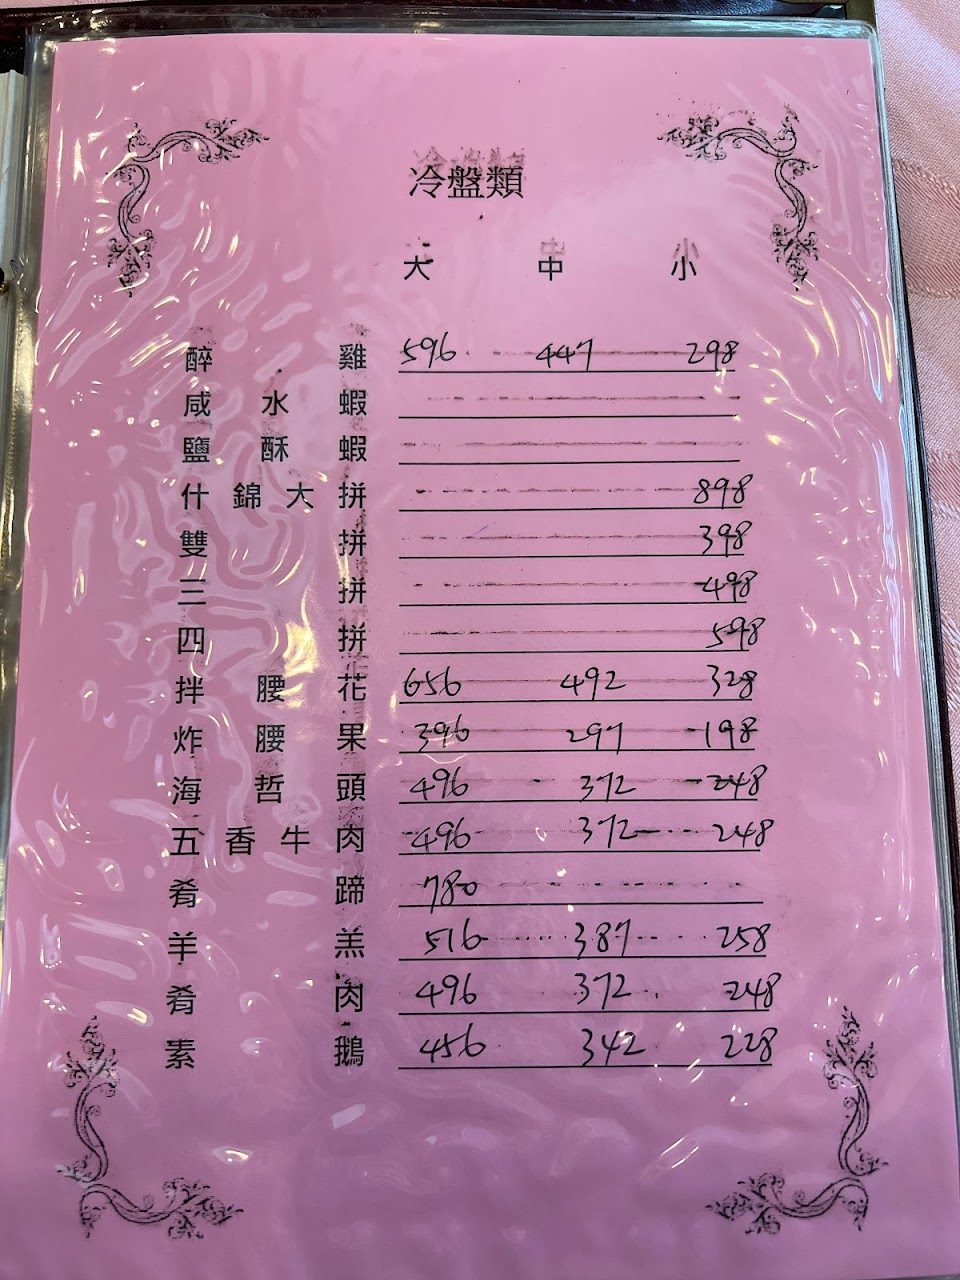 冷盤類
大 中 小
醉雞 596 447 298
咸水蝦
鹽酥蝦
什錦大拼 898
雙拼 398
三拼 498
四拼 598
拌腰花 656 492 328
炸腰果 396 297 198
海哲頭 496 372 248
五香牛肉 496 372 248
肴蹄 780
羊羔 516 387 258
肴肉 496 372 248
素鵝 456 342 228